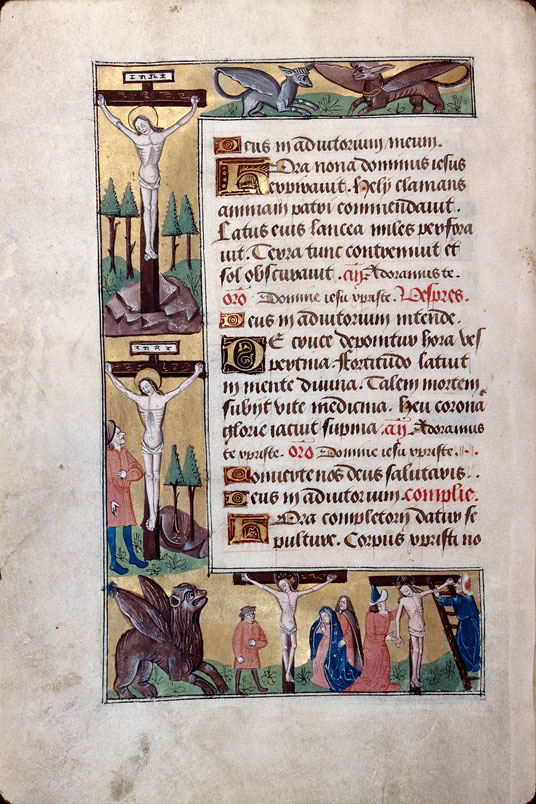 INRI
INRI
Deus in adiutorium meum.
Hora nona dominus iesus
expiravit. Hely clamans
animam patri commendauit.
Latus eius lancea miles perfora
uit. Terra tunc contremuit et
sol obscurauit. añ Adoramus te.
oro Domine iesu xpriste. Vespres.
Deus in adiutorium intende.
De cruce deponitur hora ves
pertina. Fortitudo latuit
in mente diuina. Talem mortem
subijt vite medicina. Heu corona
glorie iacuit supina. añ Adoramus
te xpriste. oro Domine iesu xpriste.
Conuerte nos deus salutaris.
Deus in adiutorium. complie.
Hora completorij datur se
pulture. Corpus xpristi no